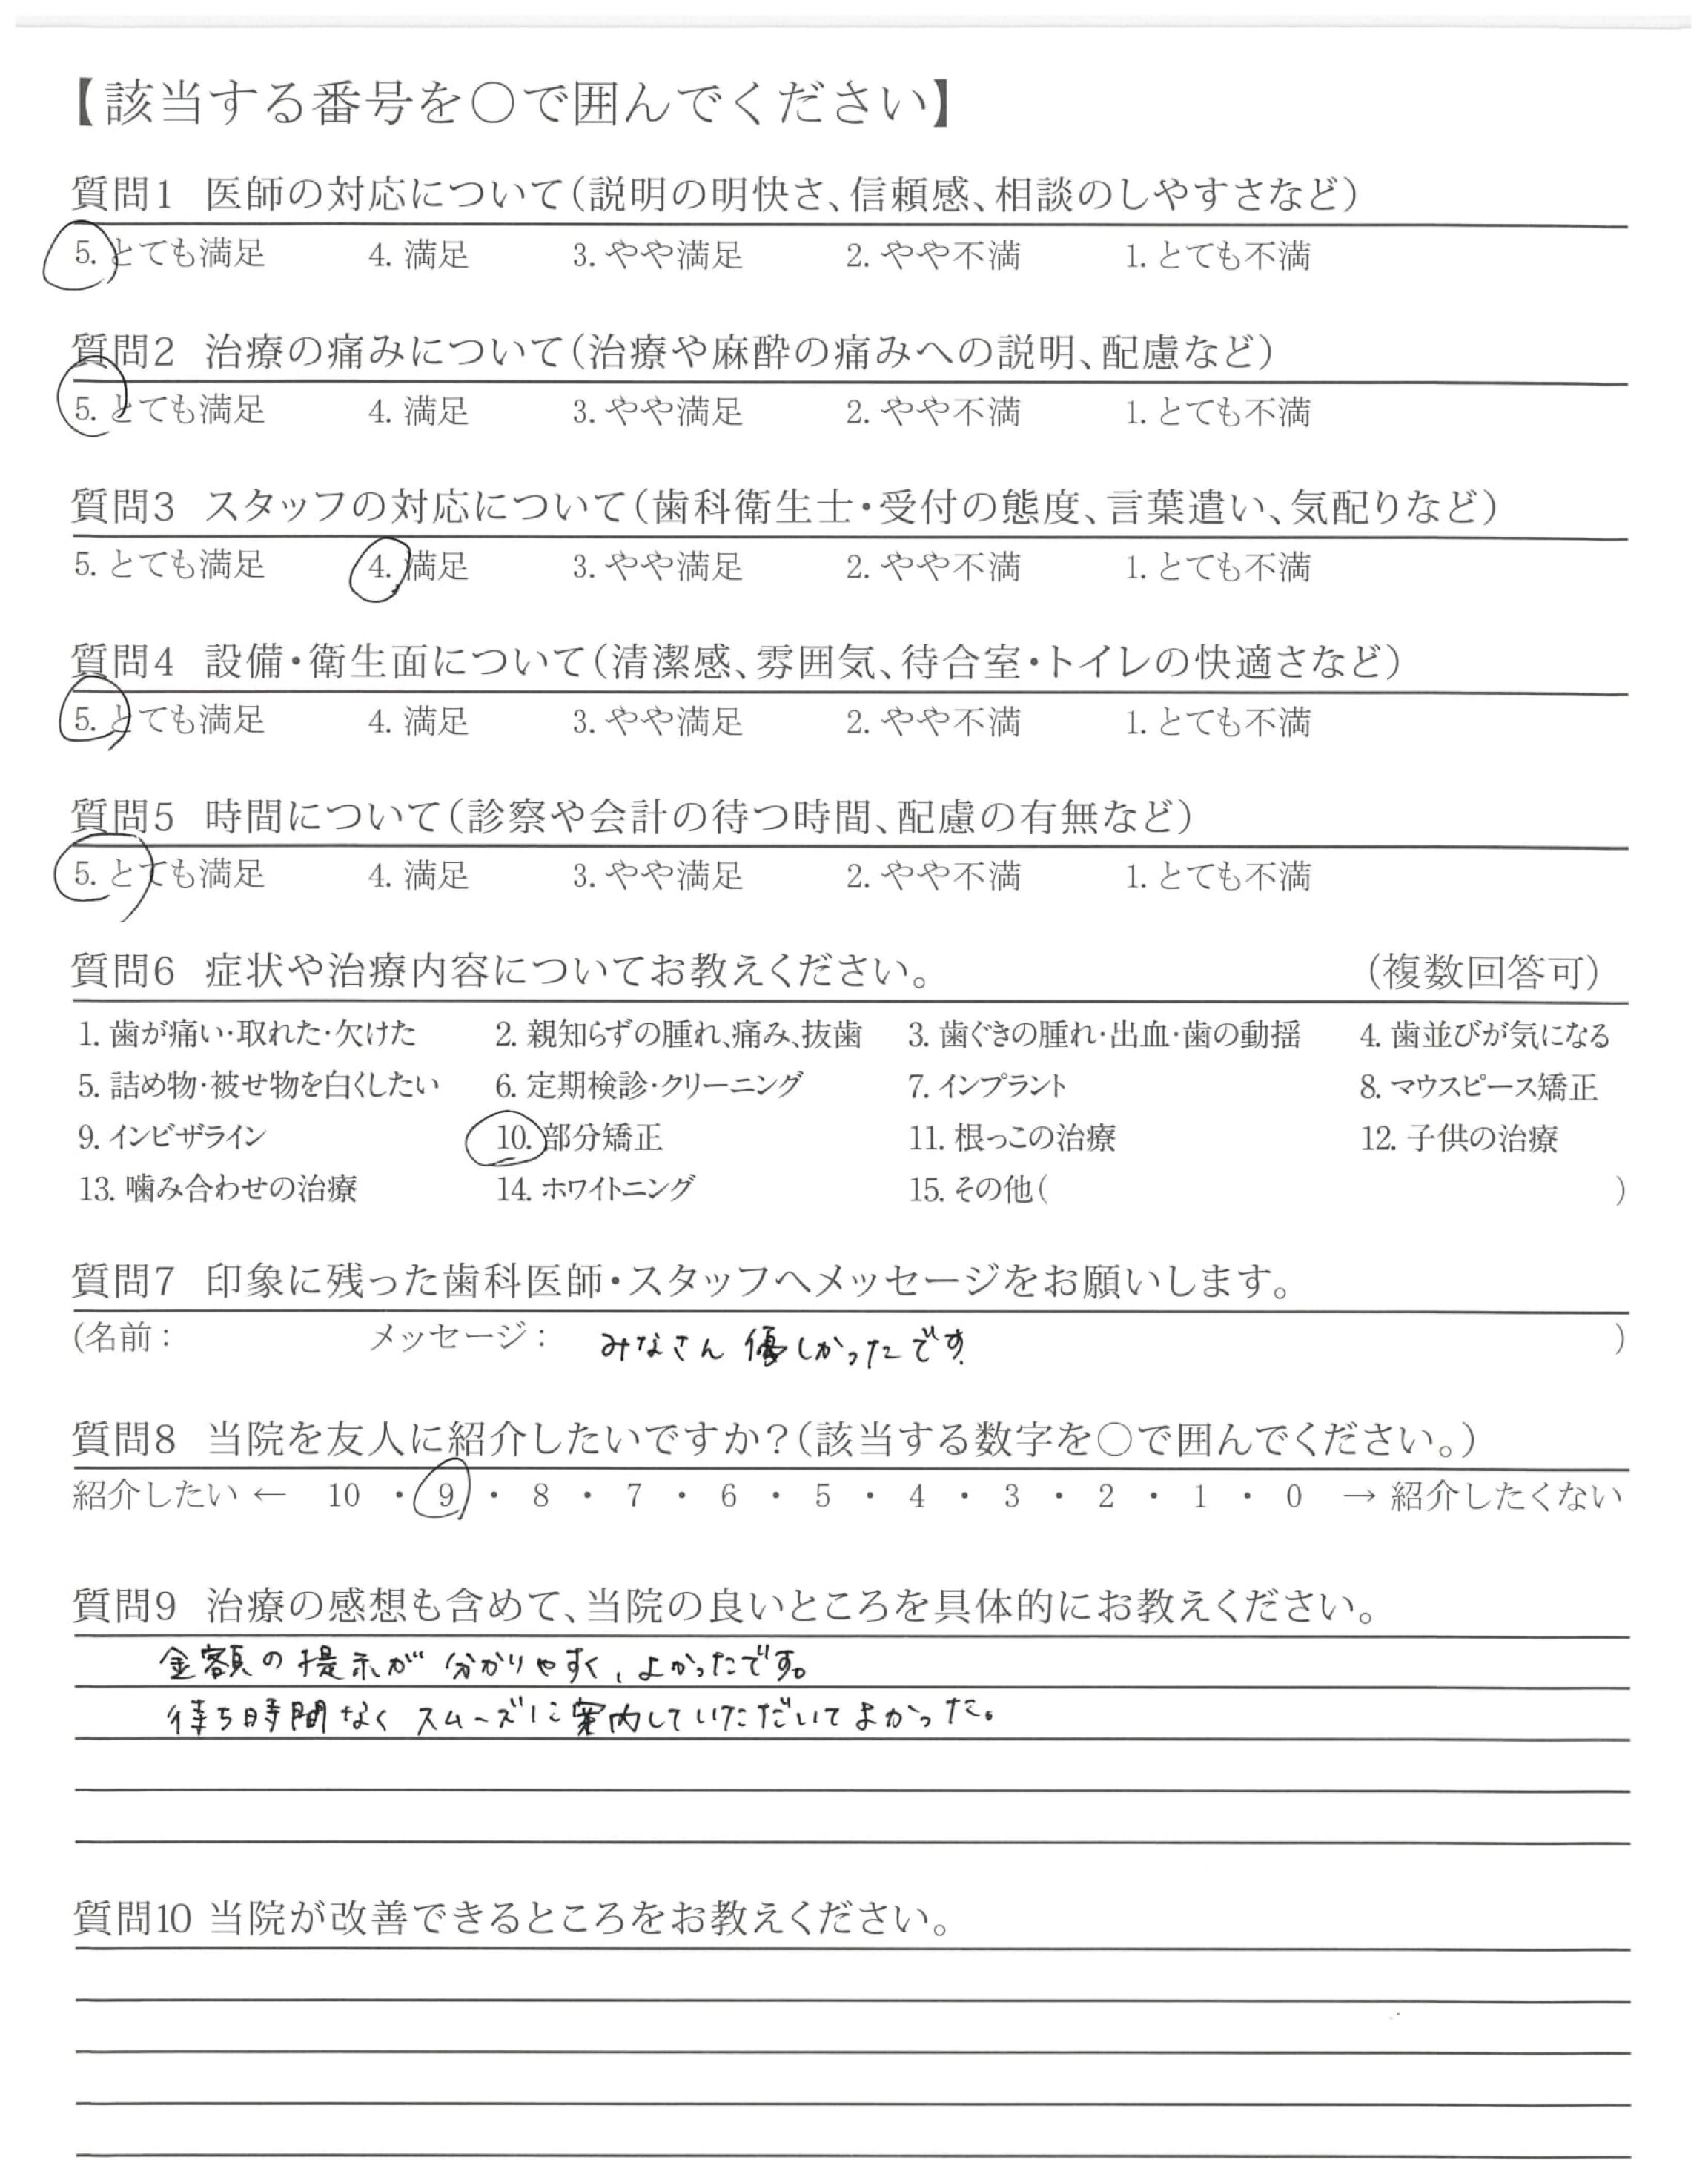 【該当する番号を○で囲んでください】
質問1 医師の対応について(説明の明快さ、信頼感、相談のしやすさなど)
5. とても満足 4. 満足 3. やや満足 2. やや不満 1. とても不満
質問2 治療の痛みについて(治療や麻酔の痛みへの説明、配慮など)
5. とても満足 4. 満足 3. やや満足 2. やや不満 1. とても不満
質問3 スタッフの対応について(歯科衛生士・受付の態度、言葉遣い、気配りなど)
5. とても満足 4. 満足 3. やや満足 2. やや不満 1. とても不満
質問4 設備・衛生面について(清潔感、雰囲気、待合室・トイレの快適さなど)
5. とても満足 4. 満足 3. やや満足 2. やや不満 1. とても不満
質問5 時間について(診察や会計の待つ時間、配慮の有無など)
5. とても満足 4. 満足 3. やや満足 2. やや不満 1. とても不満
質問6 症状や治療内容についてお教えください。 (複数回答可)
1. 歯が痛い・取れた・欠けた 2. 親知らずの腫れ、痛み、抜歯 3. 歯ぐきの腫れ・出血・歯の動揺 4. 歯並びが気になる
5. 詰め物・被せ物を白くしたい 6. 定期検診・クリーニング 7. インプラント 8. マウスピース矯正
9. インビザライン 10. 部分矯正 11. 根っこの治療 12. 子供の治療
13. 噛み合わせの治療 14. ホワイトニング 15. その他( )
質問7 印象に残った歯科医師・スタッフへメッセージをお願いします。
(名前: メッセージ: みなさん優しかったです。 )
質問8 当院を友人に紹介したいですか?(該当する数字を○で囲んでください。)
紹介したい ← 10 ・ 9 ・ 8 ・ 7 ・ 6 ・ 5 ・ 4 ・ 3 ・ 2 ・ 1 ・ 0 → 紹介したくない
質問9 治療の感想も含めて、当院の良いところを具体的にお教えください。
金額の提示が分かりやすく、よかったです。
待ち時間なくスムーズに案内していただいてよかった。
質問10 当院が改善できるところをお教えください。